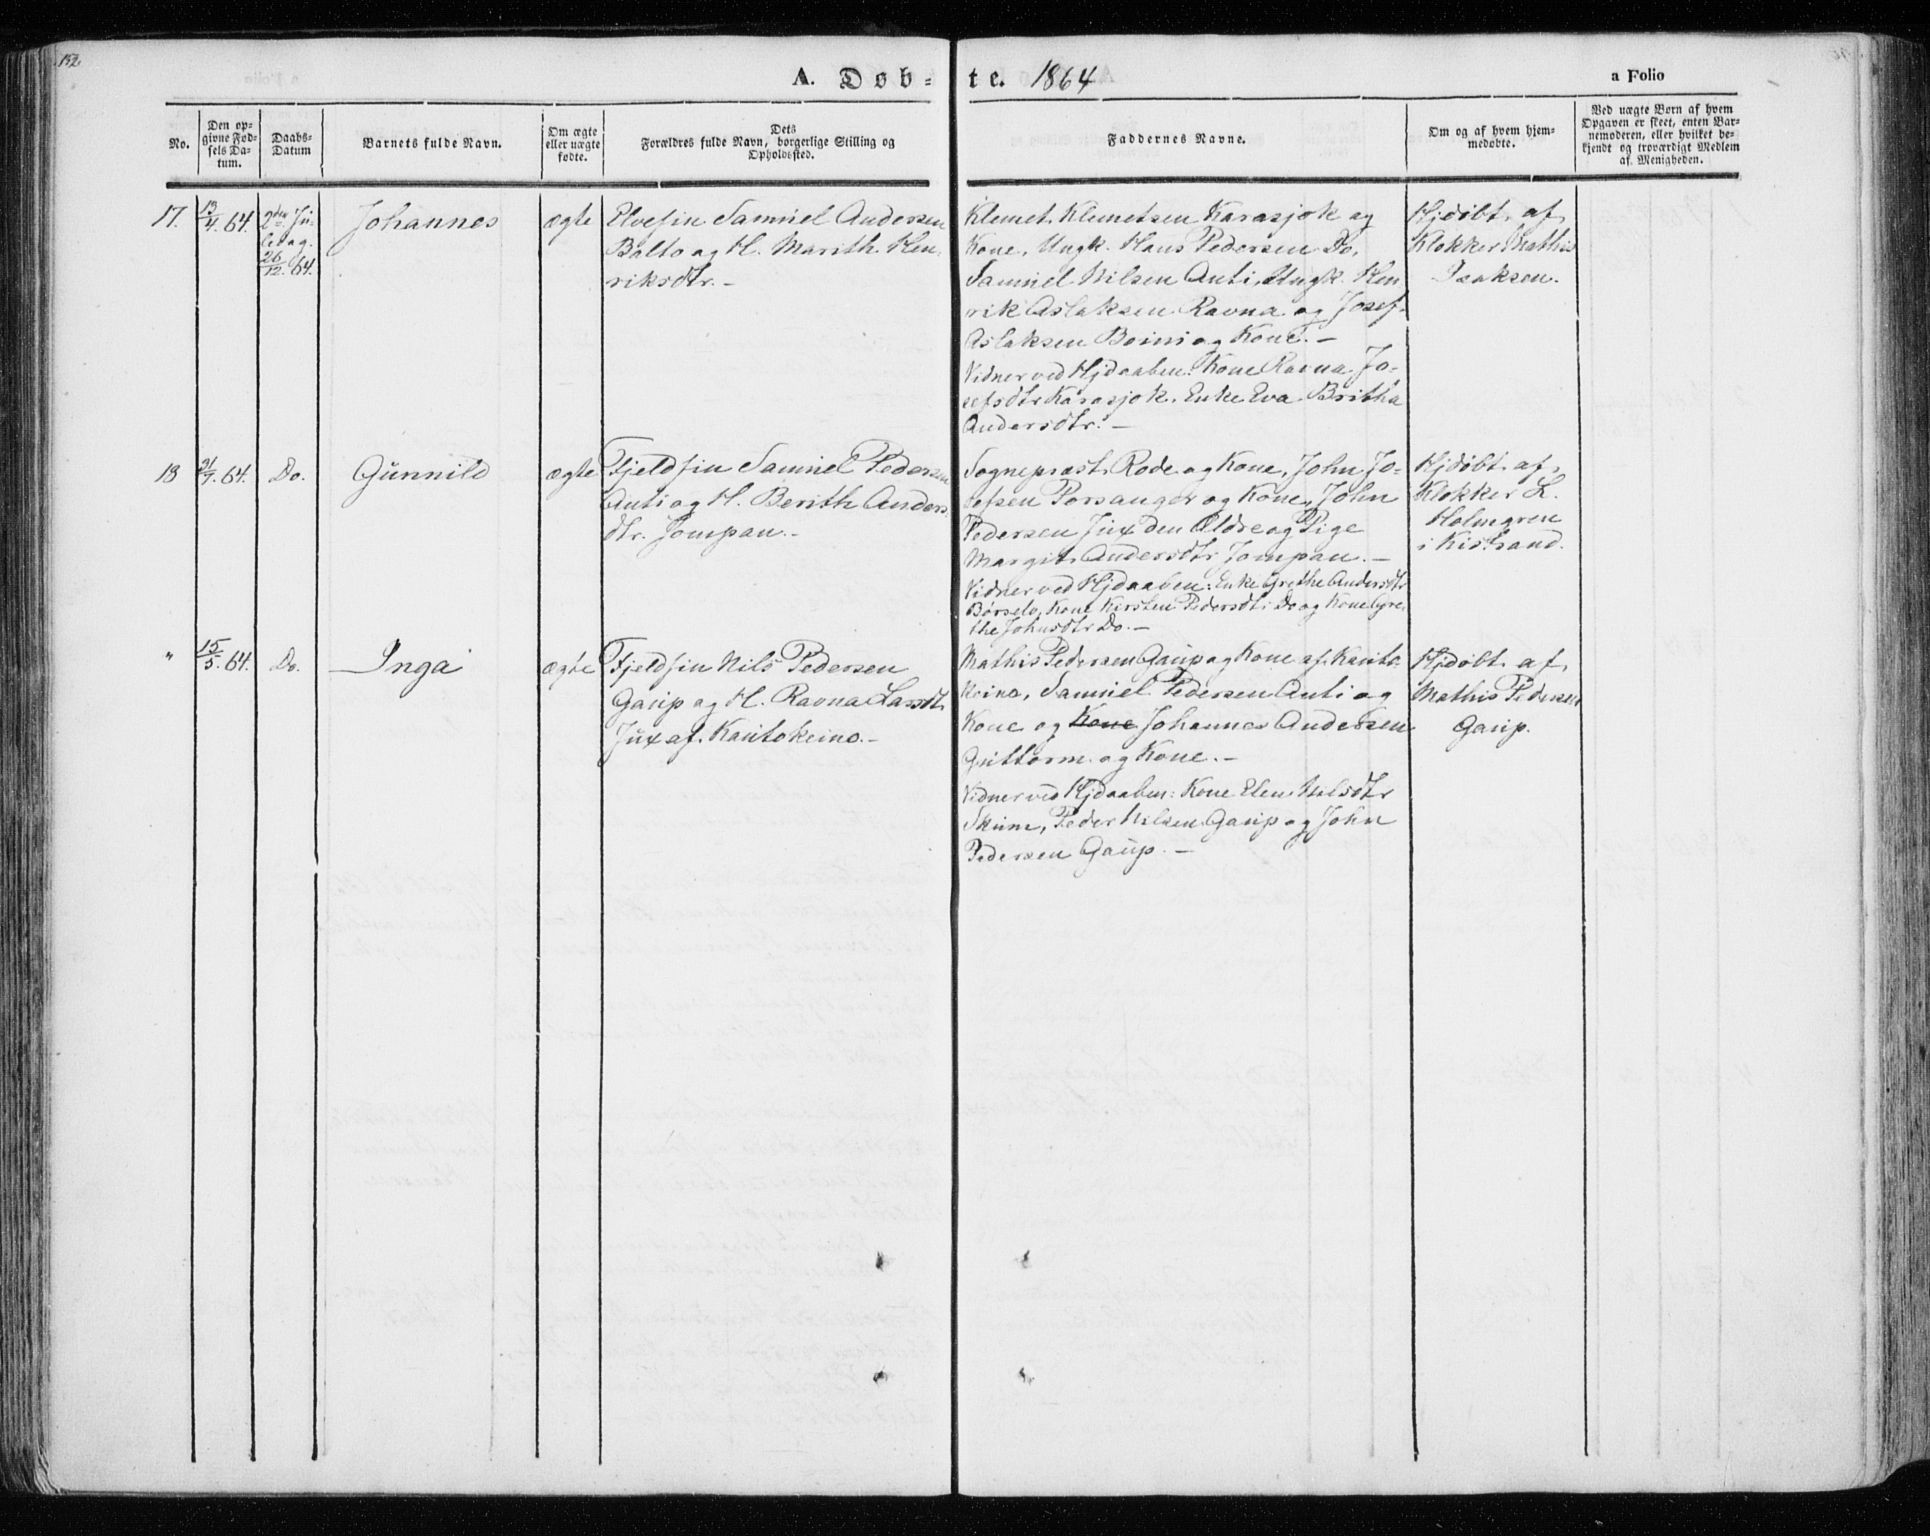 152
A. Døb-
te. 1864
a Folio
No.
Den op-
givne Fød-
sels Da-
tum.
Daabs-
Datum
Barnets fulde Navn.
Om ægte
eller uægte
fødte.
Dets
Forældres fulde Navn, borgerlige Stilling og
Opholdssted.
Faddernes Navne.
Om og af hvem hjem-
medøbte.
Ved uægte Børn af hvem
Opgaven er skeet, enten Bar-
nemoderen, eller hvilket be-
kjendt og troværdigt Medlem
af Menigheden.
17.
13/4. 64.
2den Ju-
ledag.
26/12. 64.
Johannes
ægte
Elvefin Samuel Andersen
Balto og H. Marith Hen
riksdtr. –
Klemet Klemetsen Karasjok og
Kone, Ungk. Hans Pedersen Do,
Samuel Nilsen Anti, Ungk. Hen
rik Aslaksen Ravna og Josef
Aslaksen Boini og Kone. –
Vidner ved Hjdaaben: Kone Ravna Jo-
sefsdtr Karasjok. Enke Eva Britha
Andersdtr. –
Hjdøbt af
Klokker Mathis
Isaksen.
18
21/7. 64.
Do.
Gunnild
ægte
Fjeldfin Samuel Pedersen
Anti og H. Berith Anders
dtr. Jompan. –
Sognepræst Rode og Kone, John Jo-
sefsen Porsanger og Kone, John
Pedersen Jux den Ældre og Pige
Margit Andersdtr Jompan. –
Vidner ved Hjdaaben: Enke Grethe Andersdtr
Børselv, Kone Kirsten Pedersdtr Do og Kone Gre
the Johnsdtr Do. –
Hjdøbt af
Klokker L.
Holmgren
i Kistrand.
"
15/5. 64.
Do.
Inga
ægte
Fjeldfin Nils Pedersen
Gaup og H. Ravna Larsdtr
Jux af Kautokeino. –
Mathis Pedersen Gaup og Kone af Kauto
keino, Samuel Pedersen Anti og
Kone og Kone Johannes Andersen
Guttorm og Kone. –
Vidner ved Hjdaaben: Kone Elen Nilsdtr
Skum, Peder Nilsen Gaup og John
Pedersen Gaup. –
Hjdøbt af
Mathis Pedersen
Gaup.